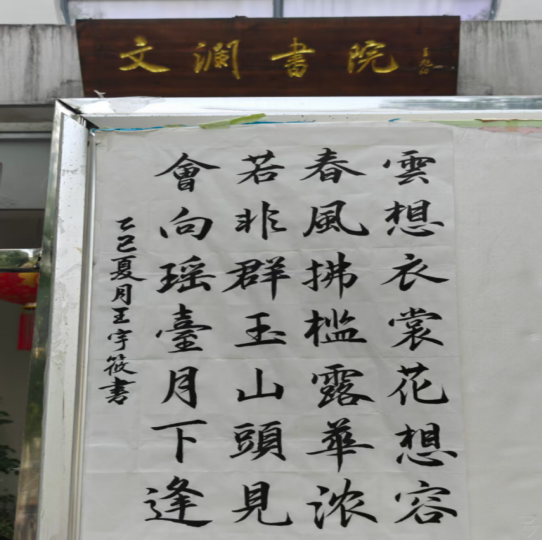 文澜書院
雲想衣裳花想容
春風拂槛露華浓
若非群玉山頭見
會向瑶臺月下逢
乙巳夏月王宇筱書